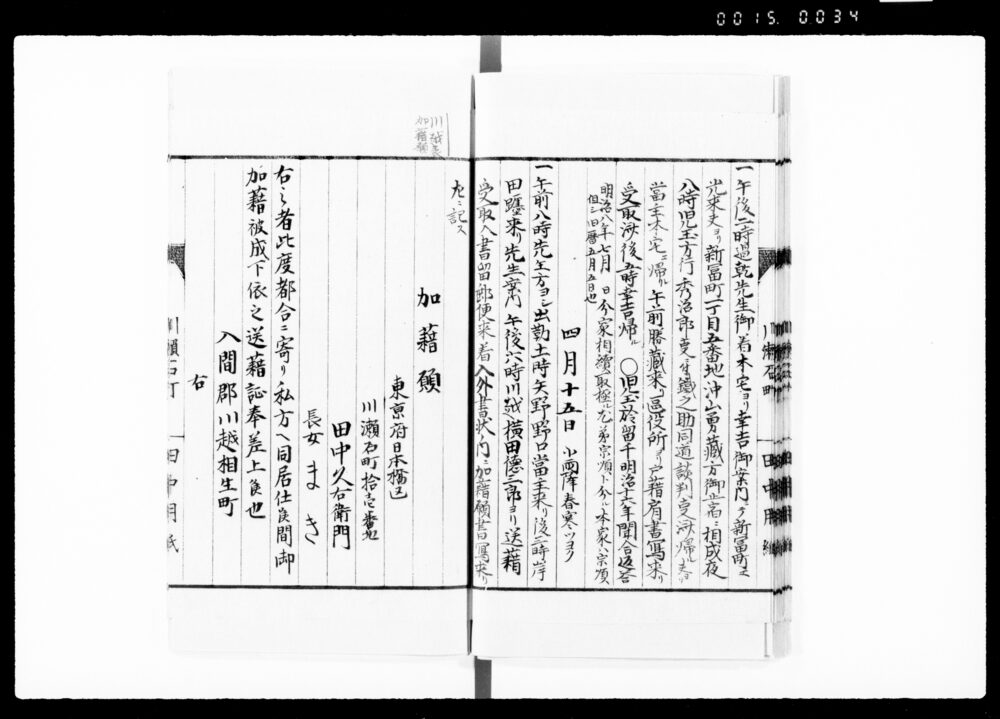 0015.0034
一 午後二時過乾先生御着本宅ヨリ幸吉御案内ニテ新冨町エ
光来夫ヨリ新冨町一丁目五番地沖山勇藏方御止宿ニ相成夜
八時児玉方行秀治郎 鐵之助同道談判 帰ル夫ヨリ
當主本宅ニ帰ル 午前勝藏来ル區役所ヨリ戸籍肩書寫来リ
受取 後五時幸吉帰ル ○児玉於留 明治十六年聞合返答
明治八年七月 日分家相續取極ル 弟宗順ト分ル本家ハ宗順
但シ旧暦五月五日也
四月十五日 小雨降春寒ツヨク
一 午前八時先生方ヨシ出勤十時矢野野口當主来リ後三時岸
田 来リ先生案内 午後六時川越横田徳二郎ヨリ送籍
受取入書留郵便来着入外書状ノ内ニ加籍願書寫来リ
左ニ記ス
川越表
加籍願
加籍願
東京府日本橋区
川瀬石町拾壱番地
田中久右衛門
長女 まき
右之者此度都合ニ寄リ私方ヘ同居仕候間御
加籍被成下依之送籍証奉差上候也
入間郡川越相生町
右
川瀬石町
田中用紙
川瀬石町
田中用紙